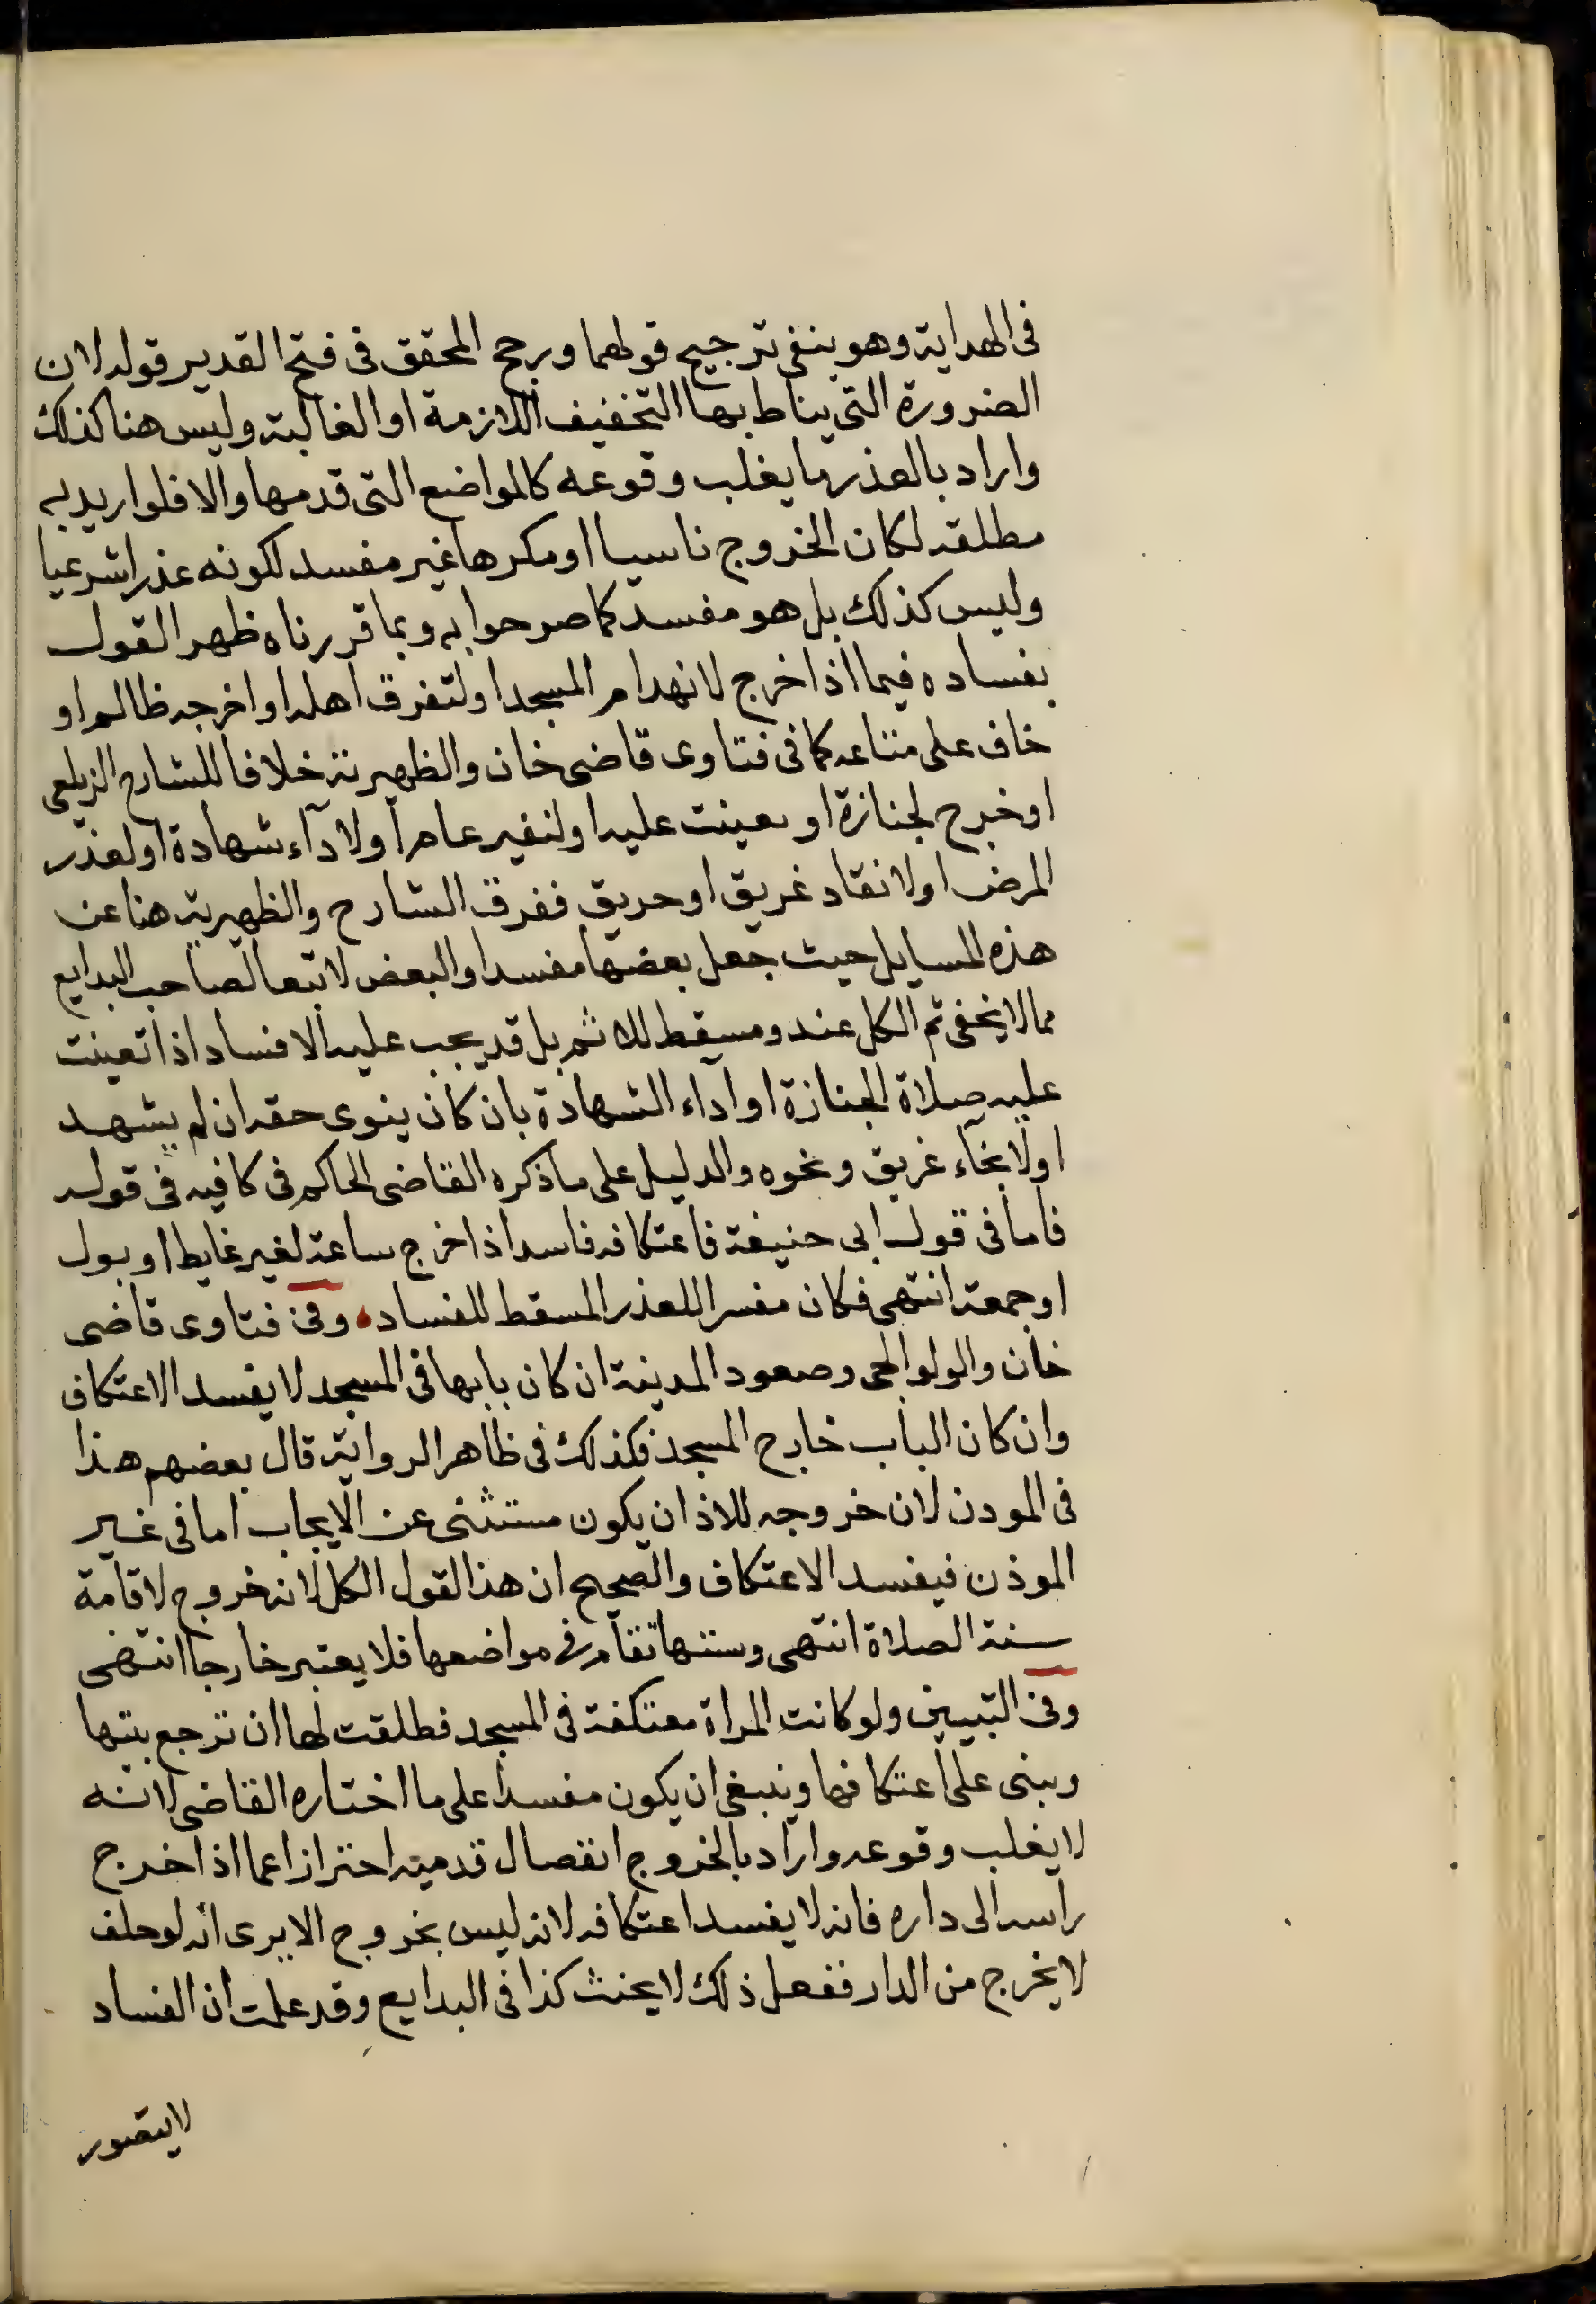 فى الهداية وهو ينفى ترجيح قولهما ورجح المحقق فى فتح القدير قوله لان
الضرورة التى يناط بها التخفيف اللازمة او الغالبة وليس هنا كذلك
واراد بالعذر ما يغلب وقوعه كالمواضع التى قدمها والا فلو اريد به
مطلقه لكان الخروج ناسيا او مكرها غير مفسد لكونه عذرا شرعيا
وليس كذلك بل هو مفسد كما صرحوا به وبما قررناه ظهر القول
بفساده فيما اذا خرج لانهدام المسجد او لتفرق اهله او اخرجه ظالم او
خاف على متاعه كما فى فتاوى قاضى خان والظهيرية خلافا للشارح الزيلعى
او خرج لجنازة او تعينت عليه او لنفير عام او لاداء شهادة او لعذر
المرض او لانقاد غريق او حريق ففرق الشارح والظهيرية هنا عن
هذه المسايل حيث جعل بعضها مفسدا والبعض لا تبعا لصاحب البدايع
مما لا يخفى ثم الكل عند ومسقط للاثم بل قد يجب عليه الافساد اذا تعينت
عليه صلاة الجنازة او آداء الشهادة بان كان ينوى حقه ان لم يشهد
او لانجاء غريق ونحوه والدليل على ما ذكره القاضى الحاكم فى كافيه فى قوله
فاما فى قول ابى حنيفة فاعتكافه فاسد اذا خرج ساعة لغير غايط او بول
او جمعة انتهى فكان مفسرا للعذر المسقط للفساد وفى فتاوى قاضى
خان والولوالجى وصعود المدينة ان كان بابها فى المسجد لا يفسد الاعتكاف
وان كان الباب خارج المسجد فكذلك فى ظاهر الرواية قال بعضهم هذا
فى المودن لان خروجه للاذان يكون مستثنى عن الايجاب اما فى غير
الموذن فيفسد الاعتكاف والصحيح ان هذا القول الكل لانه خروج لاقامة
سنة الصلاة انتهى وسنتها تقام فى مواضعها فلا يعتبر خارجا انتهى
وفى التبيين ولو كانت المراة معتكفة فى المسجد فطلقت لها ان ترجع بيتها
ويبنى على اعتكافها وينبغى ان يكون مفسدا على ما اختاره القاضى لانه
لا يغلب وقوعه واراد بالخروج انفصال قدميه احترازا عما اذا اخرج
راسه الى داره فانه لا يفسد اعتكافه لانه ليس بخروج الا يرى انه لو حلف
لا يخرج من الدار ففعل ذلك لا يحنث كذا فى البدايع وقد علمت ان الفساد
لا يتصور